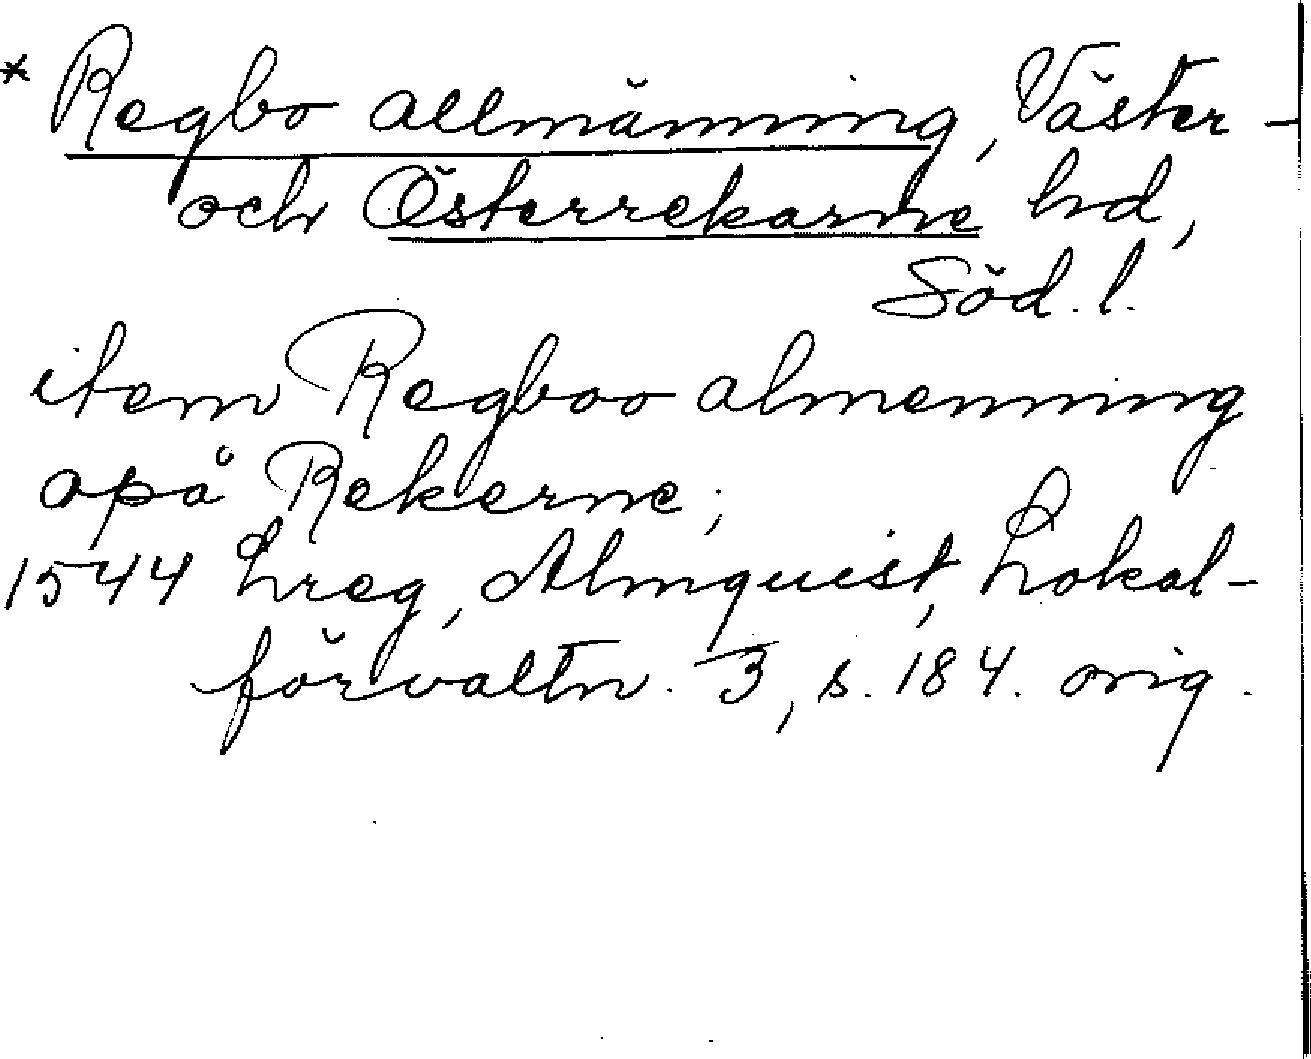 * Regbo allmänning, Väster-
och Österrekarne hd,
Söd. l.
item Regboo almenning
opå Rekerne;
1544 Lreg, Almquist, Lokal-
förvaltn. 3, s. 184. orig.